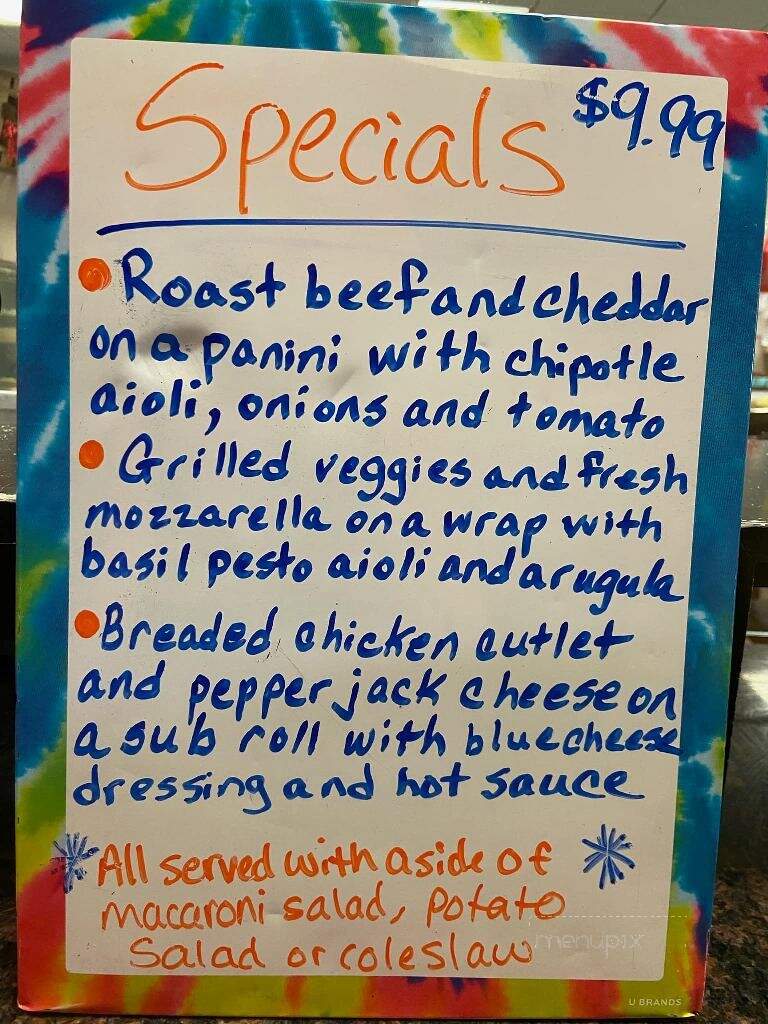 Specials $9.99
Roast beef and cheddar
on a panini with chipotle
aioli, onions and tomato
Grilled veggies and fresh
mozzarella on a wrap with
basil pesto aioli and arugula
Breaded chicken cutlet
and pepper jack cheese on
a sub roll with bluecheese
dressing and hot sauce
All served with a side of
macaroni salad, potato
salad or coleslaw
menupix
U BRANDS